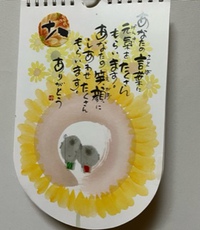 十八
あなたの言葉に
元気をたくさん
もらいます!
あなたの笑顔に
しあわせたくさん
もらいます!
ありがとう